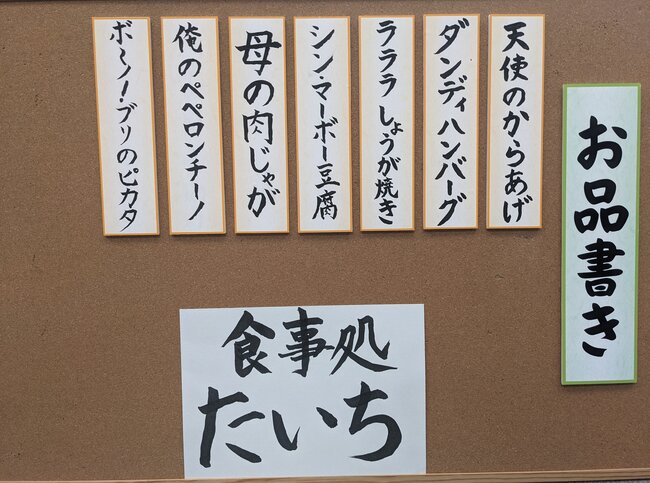 お品書き
天使のからあげ
ダンディハンバーグ
ラララ しょうが焼き
シン・マーボー豆腐
母の肉じゃが
俺のペペロンチーノ
ボーノ!・ブリのピカタ
食事処
たいち